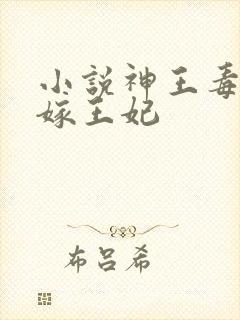 小説神王毒
嫁王妃
布呂希